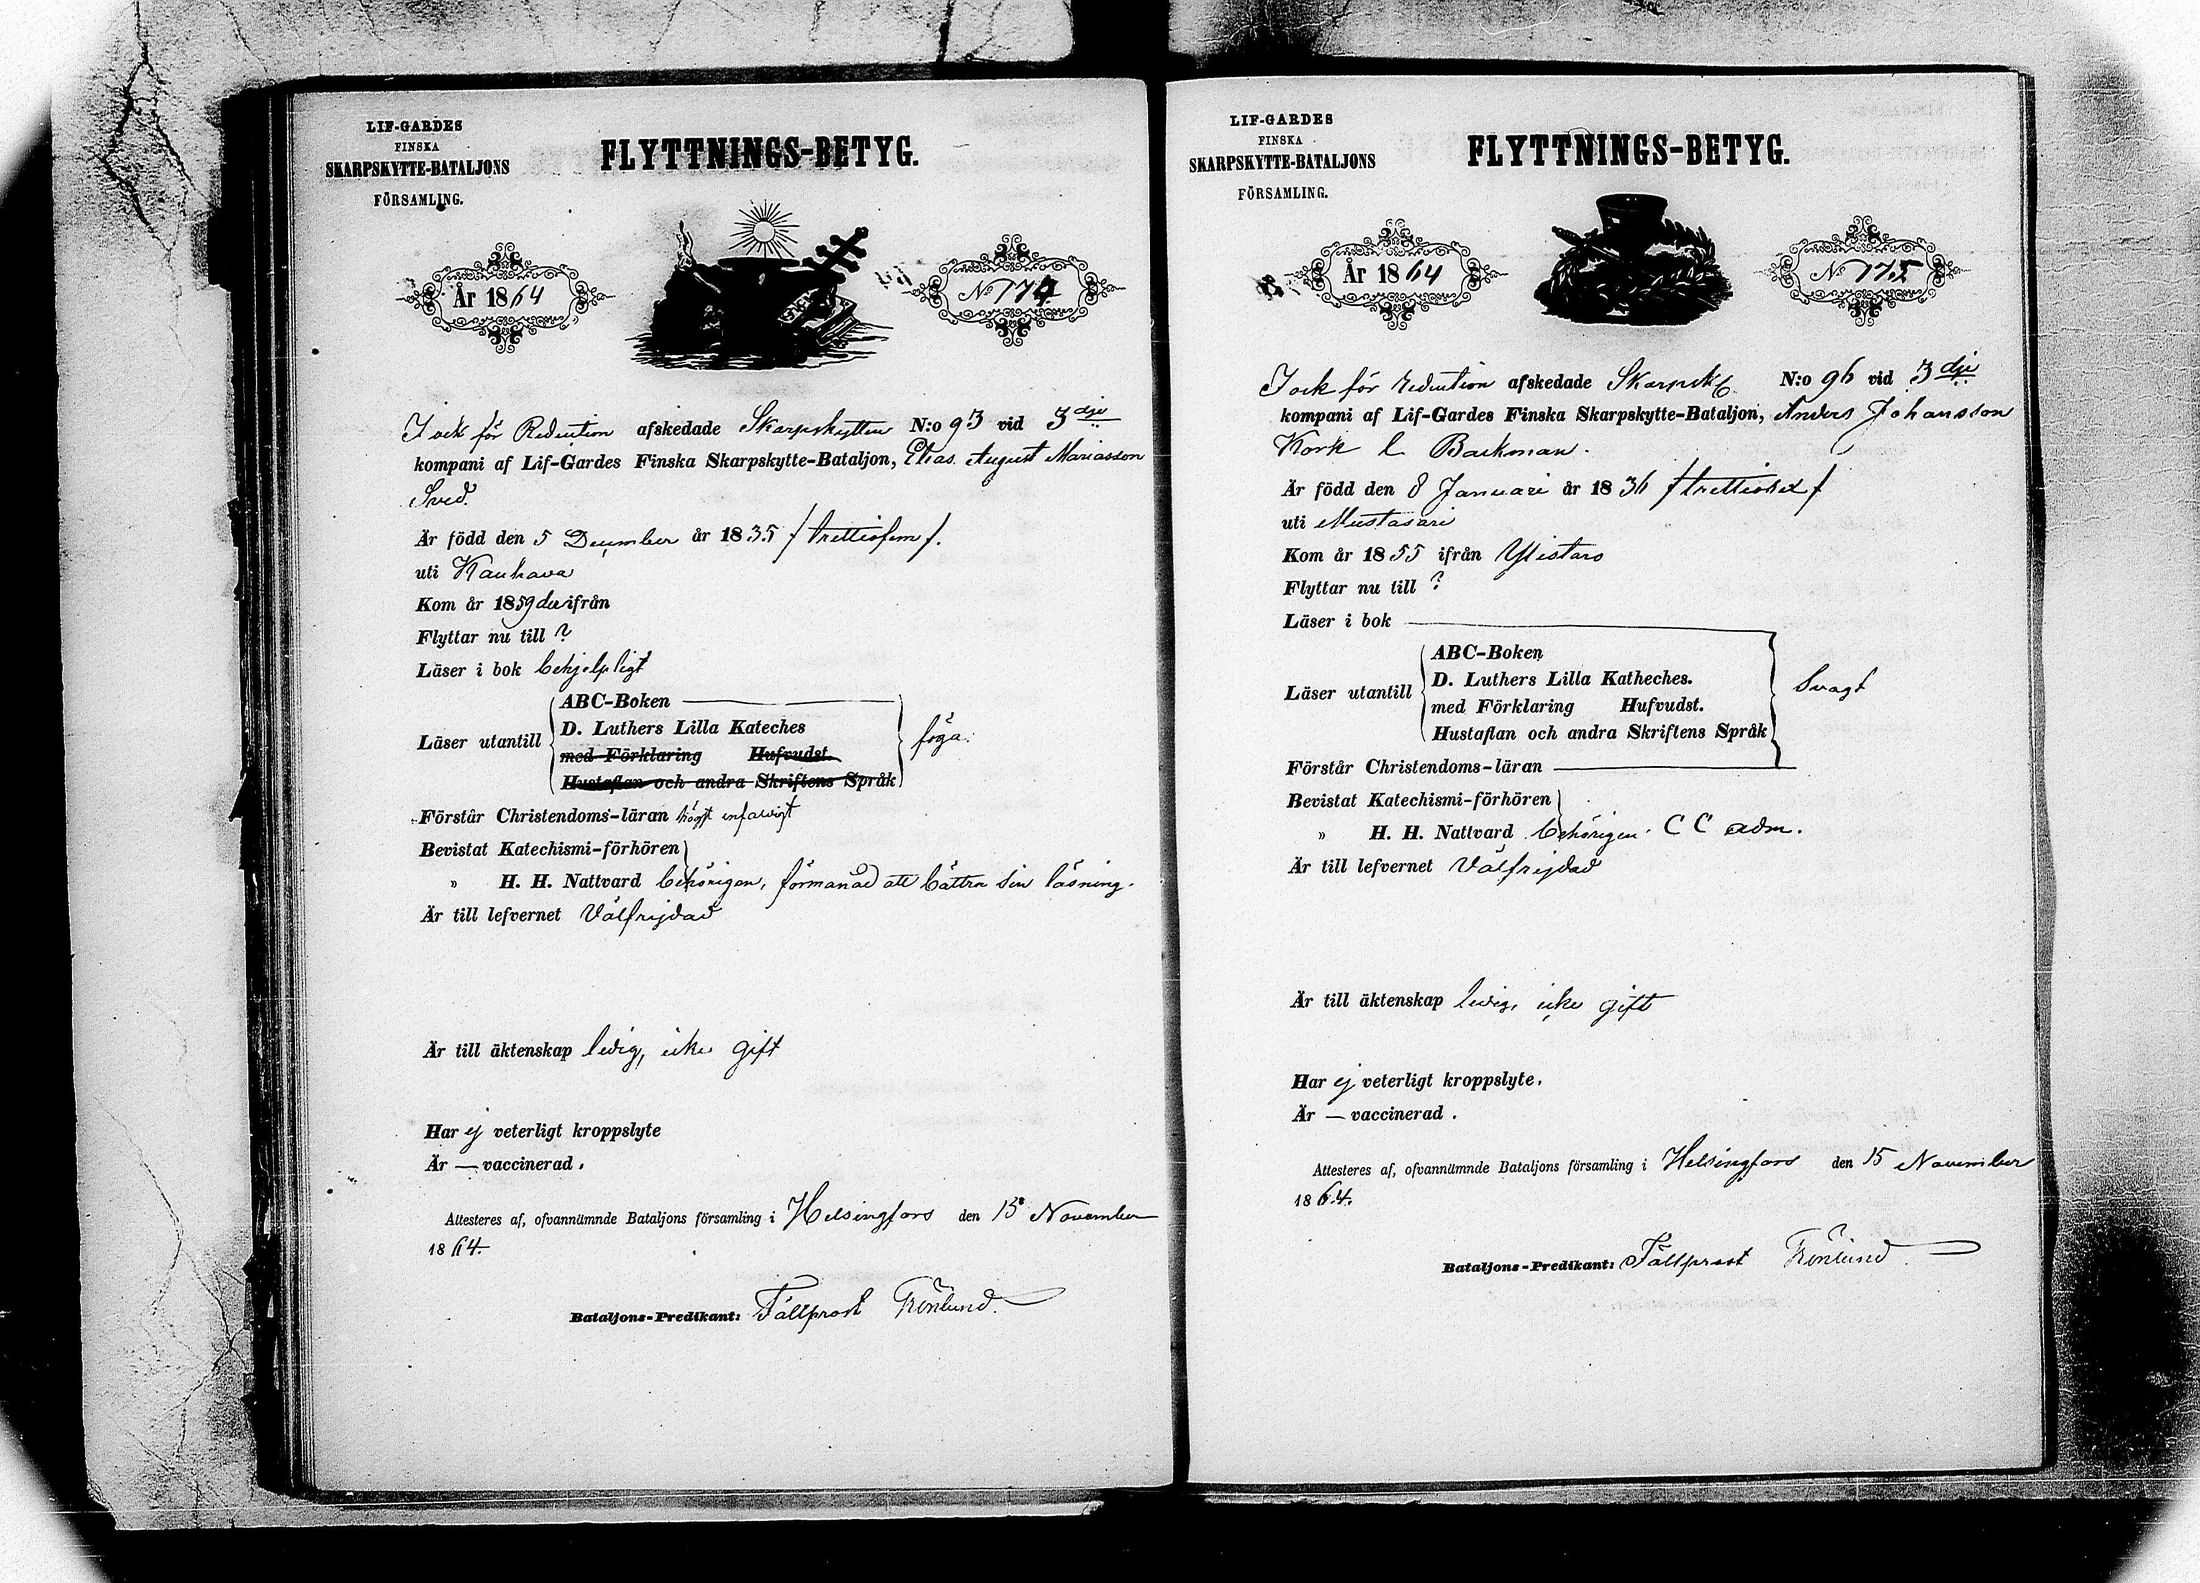 LIF-GARDES
FINSKA
SKARPSKYTTE-BATALJONS
FÖRSAMLING.
FLYTTNINGS-BETYG.
År 1864
No 174
I och för Reduction afskedade Skarpskytten N:o 93 vid 3dje
kompani af Lif-Gardes Finska Skarpskytte-Bataljon, Elias August Mariasson
Sved.
Är född den 5 December år 1835 /trettiofem/.
uti Kauhava
Kom år 1859 derifrån
Flyttar nu till ?
Läser i bok behjelpligt
Läser utantill
ABC-Boken
D. Luthers Lilla Kateches
med Förklaring Hufvudst.
Hustaflan och andra Skriftens Språk
föga.
Förstår Christendoms-läran högst enfaldigt
Bevistat Katechismi-förhören
" H. H. Nattvard behörigen, förmanad att bättra sin läsning.
Är till lefvernet Välfrejdad
Är till äktenskap ledig, icke gift
Har ej veterligt kroppslyte
Är — vaccinerad.
Attesteres af, ofvannämnde Bataljons församling i Helsingfors den 15 November
1864.
Bataljons-Predikant: Fältprost
LIF-GARDES
FINSKA
SKARPSKYTTE-BATALJONS
FÖRSAMLING.
FLYTTNINGS-BETYG.
År 1864
No 175
I och för reduction afskedade Skarpsk. N:o 96 vid 3dje
kompani af Lif-Gardes Finska Skarpskytte-Bataljon, Anders Johansson
Kork l. Backman.
Är född den 8 Januari år 1836 /trettiosex/
uti Mustasari
Kom år 1855 ifrån Ylistaro
Flyttar nu till ?
Läser i bok
Läser utantill
ABC-Boken
D. Luthers Lilla Katheches.
med Förklaring Hufvudst.
Hustaflan och andra Skriftens Språk
Svagt
Förstår Christendoms-läran
Bevistat Katechismi-förhören
" H. H. Nattvard behörigen. C C adm.
Är till lefvernet Välfrejdad
Är till äktenskap ledig, icke gift
Har ej veterligt kroppslyte.
Är — vaccinerad.
Attesteres af, ofvannämnde Bataljons församling i Helsingfors den 15 November
1864.
Bataljons-Predikant: Fältprost